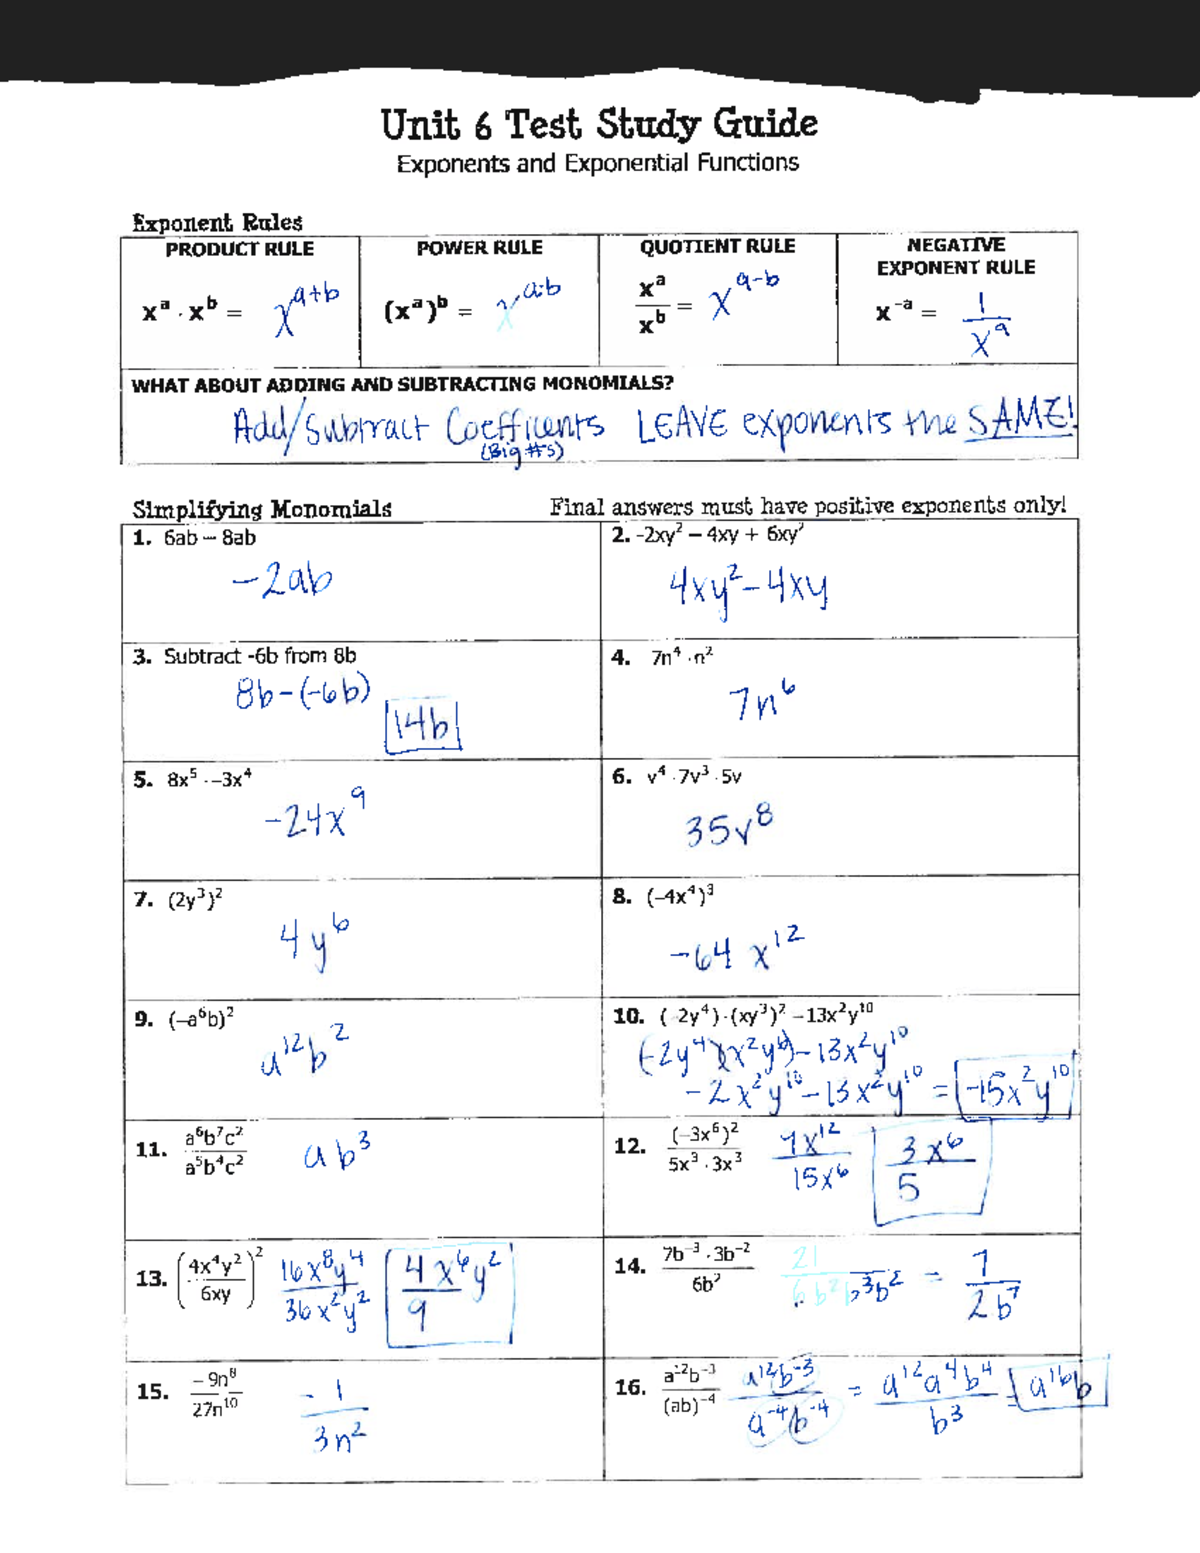 Unit 6 Test Study Guide
Exponents and Exponential Functions
Exponent Rules
PRODUCT RULE
x^a · x^b = x^(a+b)
POWER RULE
(x^a)^b = x^(a·b)
QUOTIENT RULE
x^a / x^b = x^(a-b)
NEGATIVE
EXPONENT RULE
x^-a = 1 / x^a
WHAT ABOUT ADDING AND SUBTRACTING MONOMIALS?
Add/Subtract Coefficents LEAVE exponents the SAME!
(Big #s)
Simplifying Monomials Final answers must have positive exponents only!
1. 6ab – 8ab
-2ab
2. -2xy² – 4xy + 6xy²
4xy² - 4xy
3. Subtract -6b from 8b
8b-(-6b)
14b
4. 7n⁴ · n²
7n⁶
5. 8x⁵ · –3x⁴
-24x⁹
6. v⁴ · 7v³ · 5v
35v⁸
7. (2y³)²
4y⁶
8. (–4x⁴)³
-64x¹²
9. (–a⁶b)²
a¹²b²
10. (-2y⁴) · (xy³)² –13x²y¹⁰
(-2y⁴)(x²y⁶)-13x²y¹⁰
-2x²y¹⁰-13x²y¹⁰ = -15x²y¹⁰
11. a⁶b⁷c² / a⁵b⁴c²
ab³
12. (–3x⁶)² / 5x³ · 3x³
9x¹² / 15x⁶
3x⁶ / 5
13. (4x⁴y² / 6xy)²
16x⁸y⁴ / 36x²y²
4x⁶y² / 9
14. 7b⁻³ · 3b⁻² / 6b²
21 / 6b²b³b² = 7 / 2b⁷
15. –9n⁸ / 27n¹⁰
-1 / 3n²
16. a¹²b⁻³ / (ab)⁻⁴
a¹²b⁻³ / a⁻⁴b⁻⁴ = a¹²a⁴b⁴ / b³ = a¹⁶b